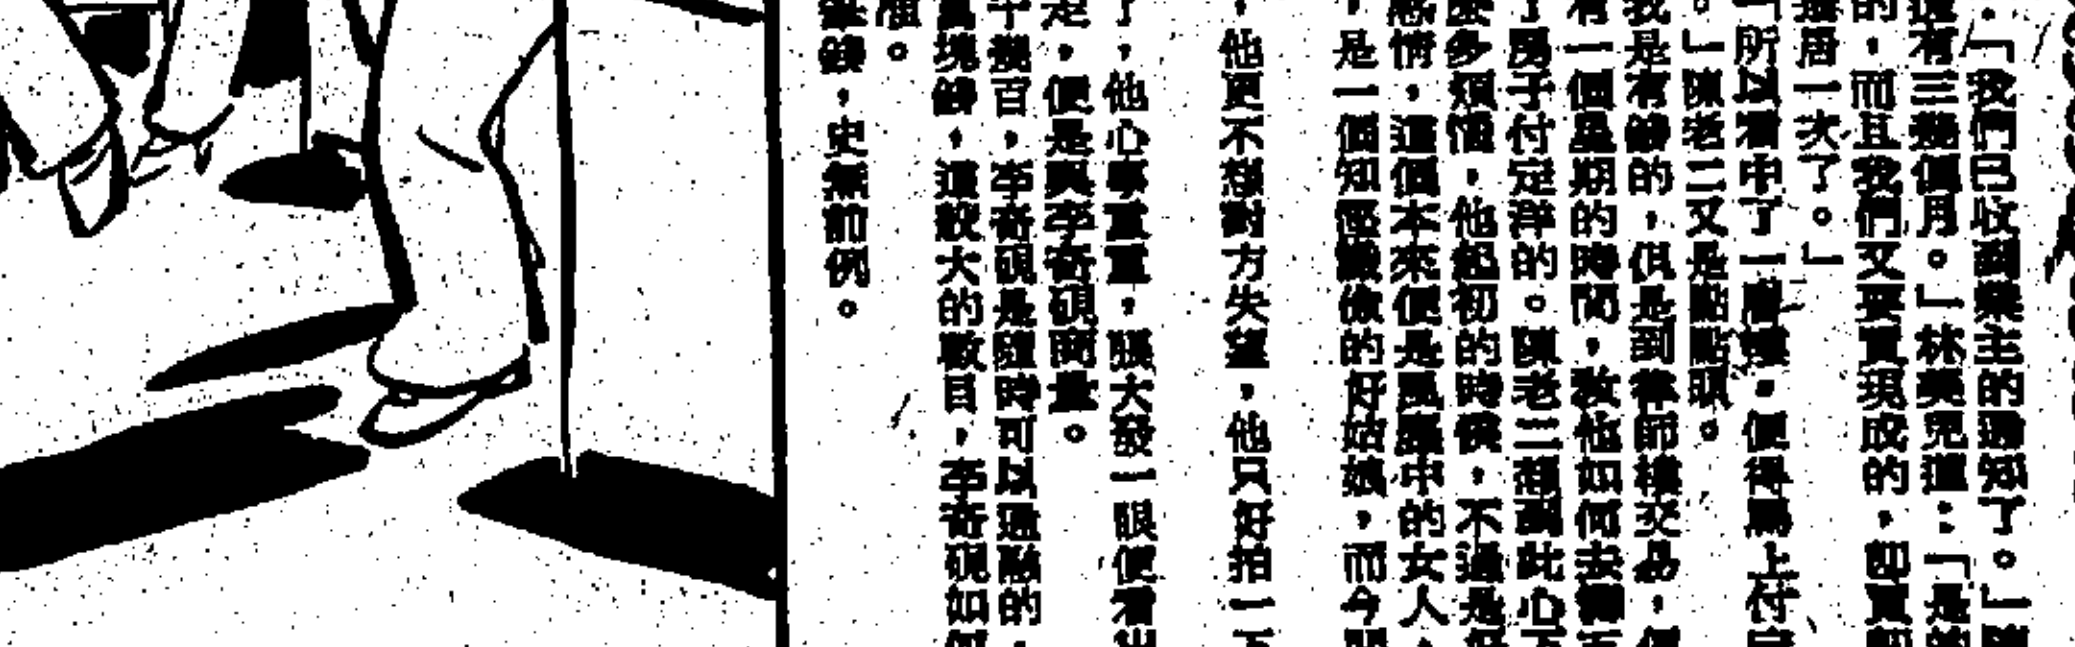 ．「我們已收到業主的通知了。」陳
還有三幾個月。」林美兒道：「是的
的，而且我們又要買現成的，即買即
搬居一次了。」
「所以看中了一層樓，便得馬上付定
。」陳老二又是點點頭。
我是有錢的，但是到律師樓交易，便
有一個星期的時間，教他如何去籌
了房子付定洋的。陳老二想到此心下
麼多煩惱，他起初的時候，不過是
感情，這個本來便是風塵中的女人，
，是一個知慳識儉的好姑娘，而今
，他更不想對方失望，他只好拍一下
了，他心事重重，張大發一眼便看出
定，便是與李奇硯商量。
千幾百，李奇硯是隨時可以通融的，
萬塊錢，這般大的數目，李奇硯如何
筆錢，史無前例。